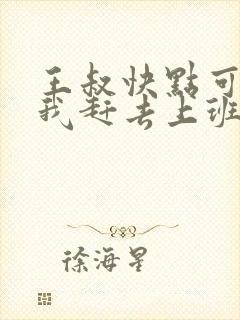 王叔快點可
我赶去上班
徐海星